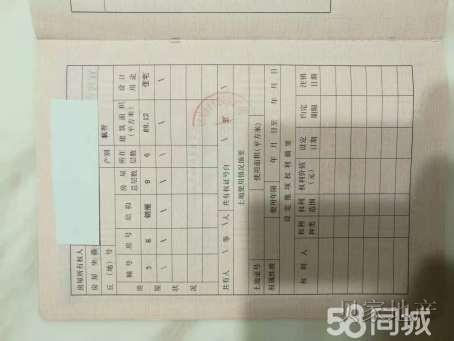 房屋所有权人
房屋坐落
丘(地)号 产别 私产
幢号 房号 结构 房屋总层数 所在层数 建筑面积(平方米) 设计用途
5 6 钢混 9 6 89.12 住宅
房屋状况
共有人 等 人 共有权证号自 至
土地使用情况摘要
土地证号 使用面积(平方米)
权属性质 使用年限 年 月 日至 年 月 日
设定他项权利摘要
权利人 权利种类 权利范围 权利价值(元) 设定日期 约定期限 注销日期
国家地产
58同城